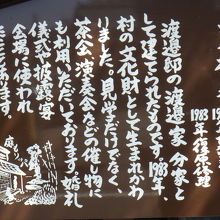 1983年復原修理
渡邉邸の渡邉家分家と
して建てられたものです。1983年、
村の文化財として生まれかわ
りました。見学だけでなく、
茶会、演奏会などの催し物に
も利用いただいております。婚礼
儀式、披露宴
会場に使われ
```